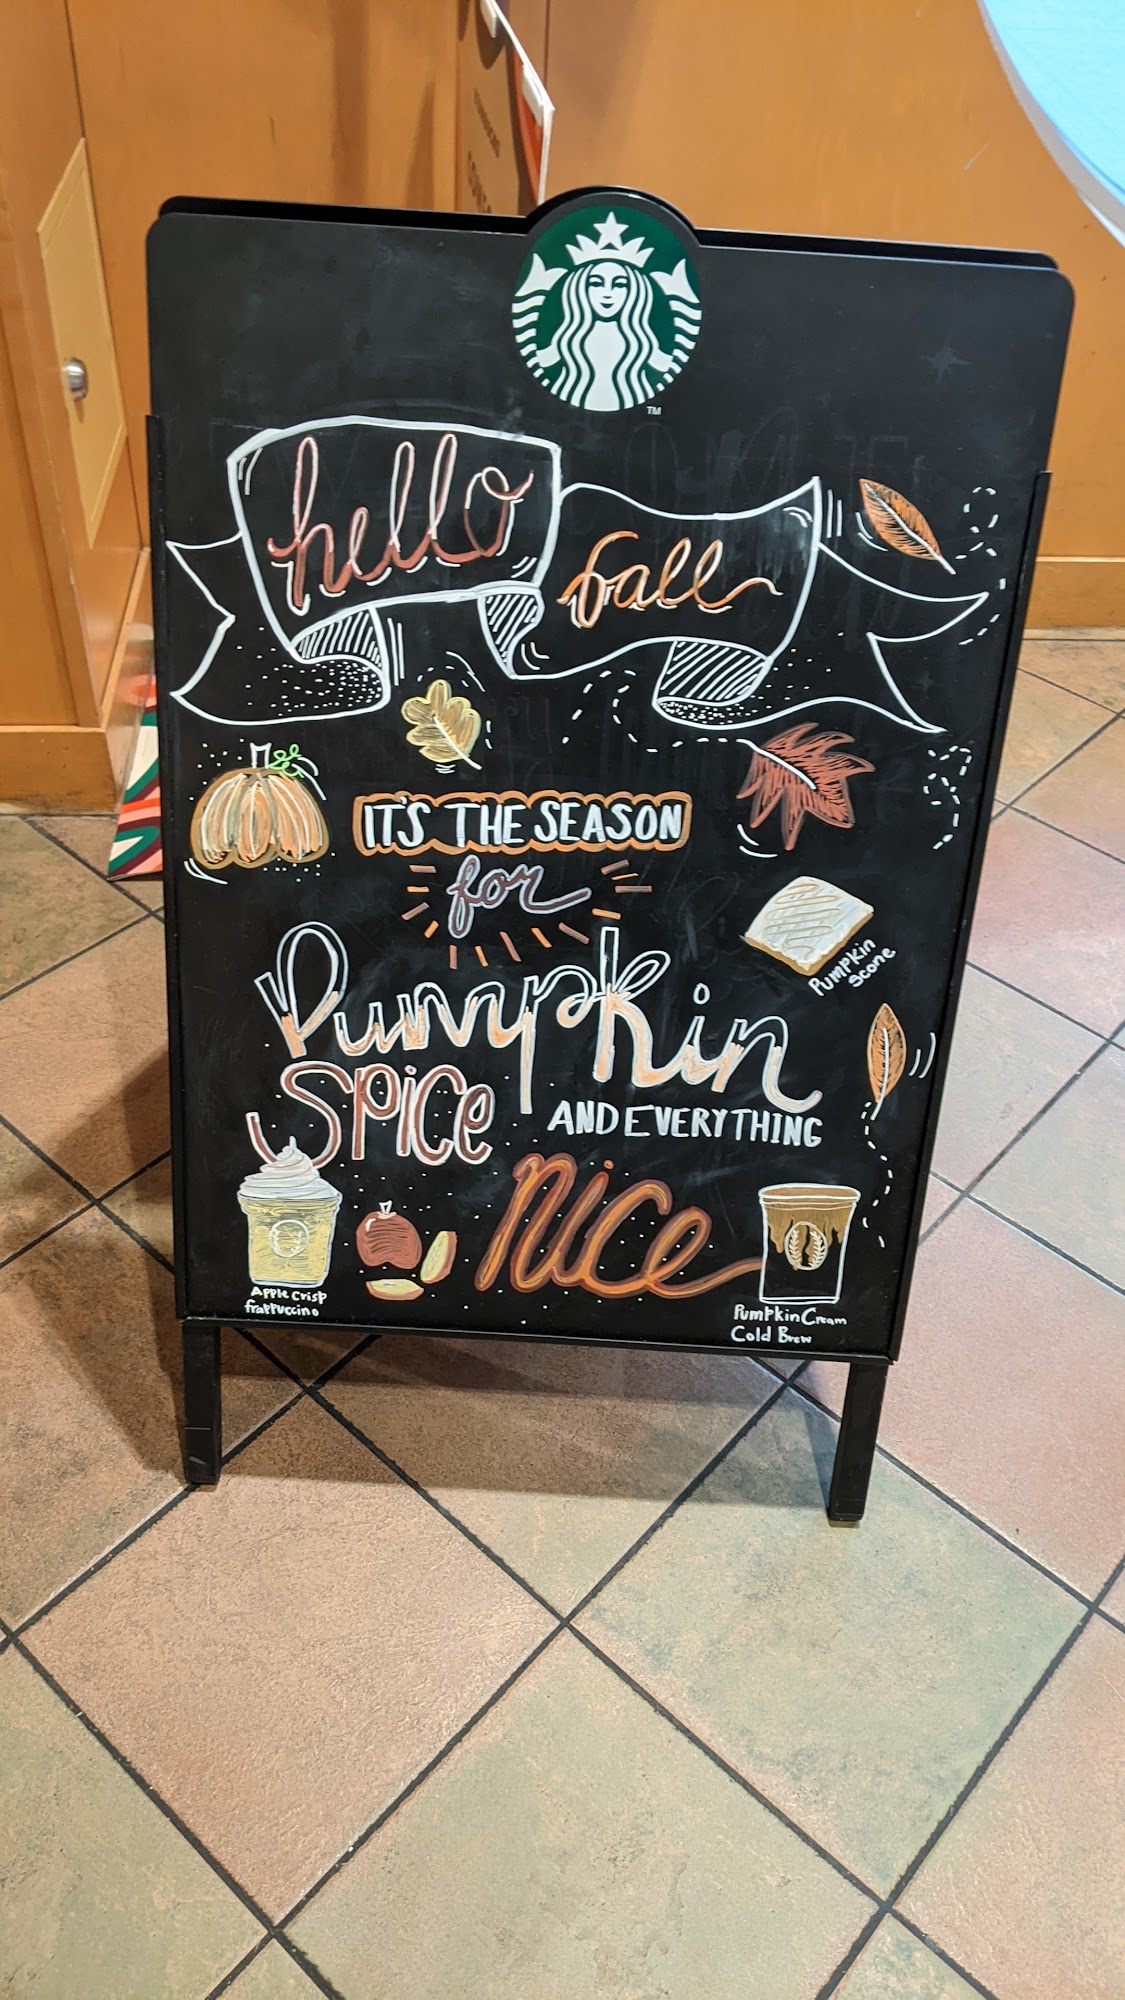 TM
hello
fall
IT'S THE SEASON
for
Pumpkin
Pumpkin
scone
SPiCe
AND EVERYTHING
NiCe
Apple Crisp
frappuccino
PumpkinCream
Cold Brew